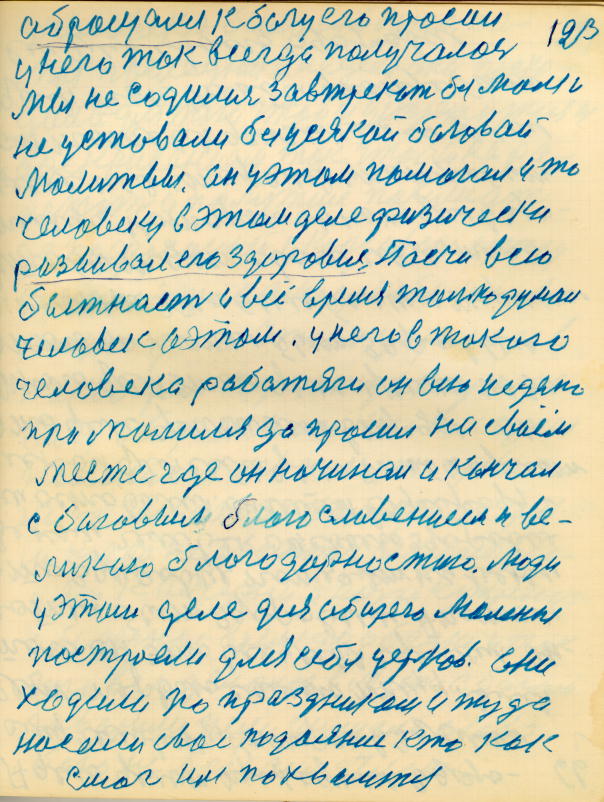 оброщали к богу его просил 123
у него так всегда получалося
Мы не содилися завтрекот бы моли
не уставали бы усякой боговай
молитвы. он у этом помогал и то
человеку в этом деле физически
развивал его здоровие. Почи всю
бытност и всё время только думал
человек в этом. у него в такого
человека работяги он всю неделю
про молился да просил на своём
месте где он ночинал и кончал
с боговым благословением и ве-
ликаю благодарностию. Люди
у этом деле для общего моленья
построели для себя церков. они
ходили по праздником и туда
носили свое подояние кто как
смог им похвалится